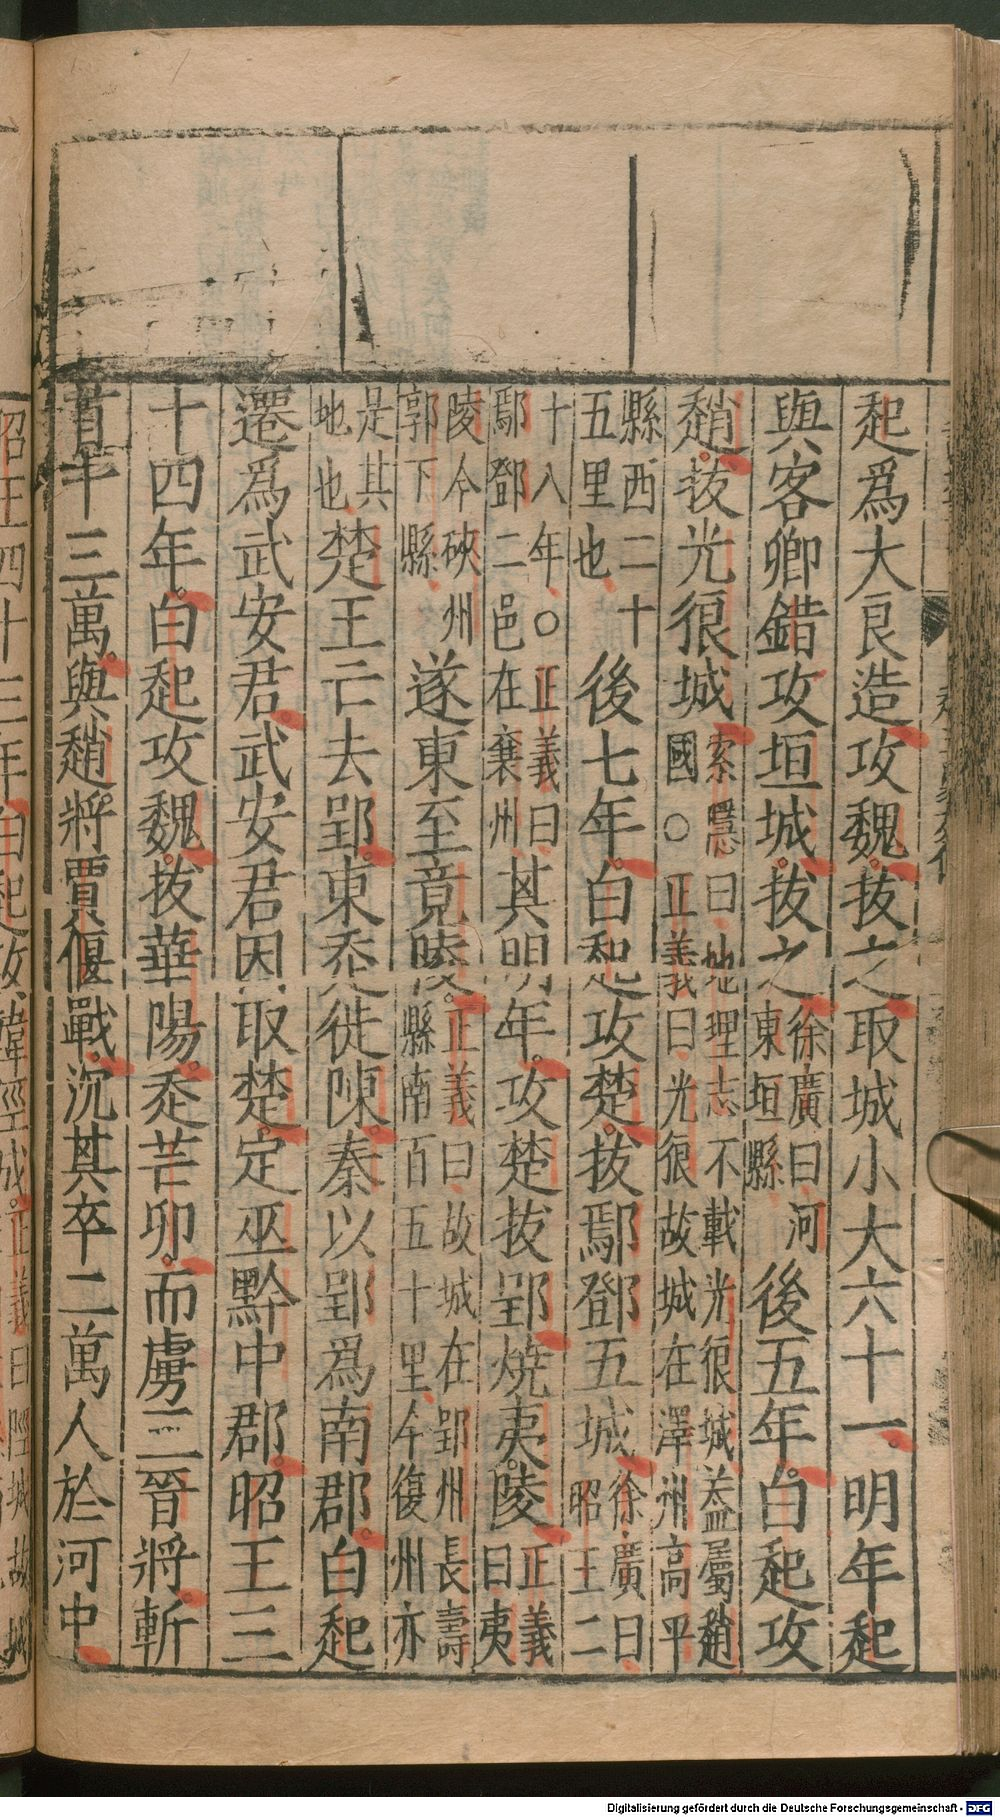 起爲大良造攻魏拔之取城小大六十一明年起
與客卿錯攻垣城拔之徐廣曰河東垣縣後五年白起攻
趙拔光狼城索隱曰地理志不載光狼城蓋屬趙國○正義曰光狼故城在澤州高平
縣西二十五里也後七年白起攻楚拔鄢鄧五城徐廣曰昭王二
十八年○正義曰鄢鄧二邑在襄州其明年攻楚拔郢燒夷陵正義曰夷
陵今硤州郭下縣遂東至竟陵正義曰故城在郢州長壽縣南百五十里今復州亦
是其地也楚王亡去郢東走徙陳秦以郢爲南郡白起
遷爲武安君武安君因取楚定巫黔中郡昭王三
十四年白起攻魏拔華陽走芒卯而虜三晉將斬
首十三萬與趙將賈偃戰沉其卒二萬人於河中
昭王四十三年白起攻韓陘城正義曰陘城故城
Digitalisierung gefördert durch die Deutsche Forschungsgemeinschaft - DFG